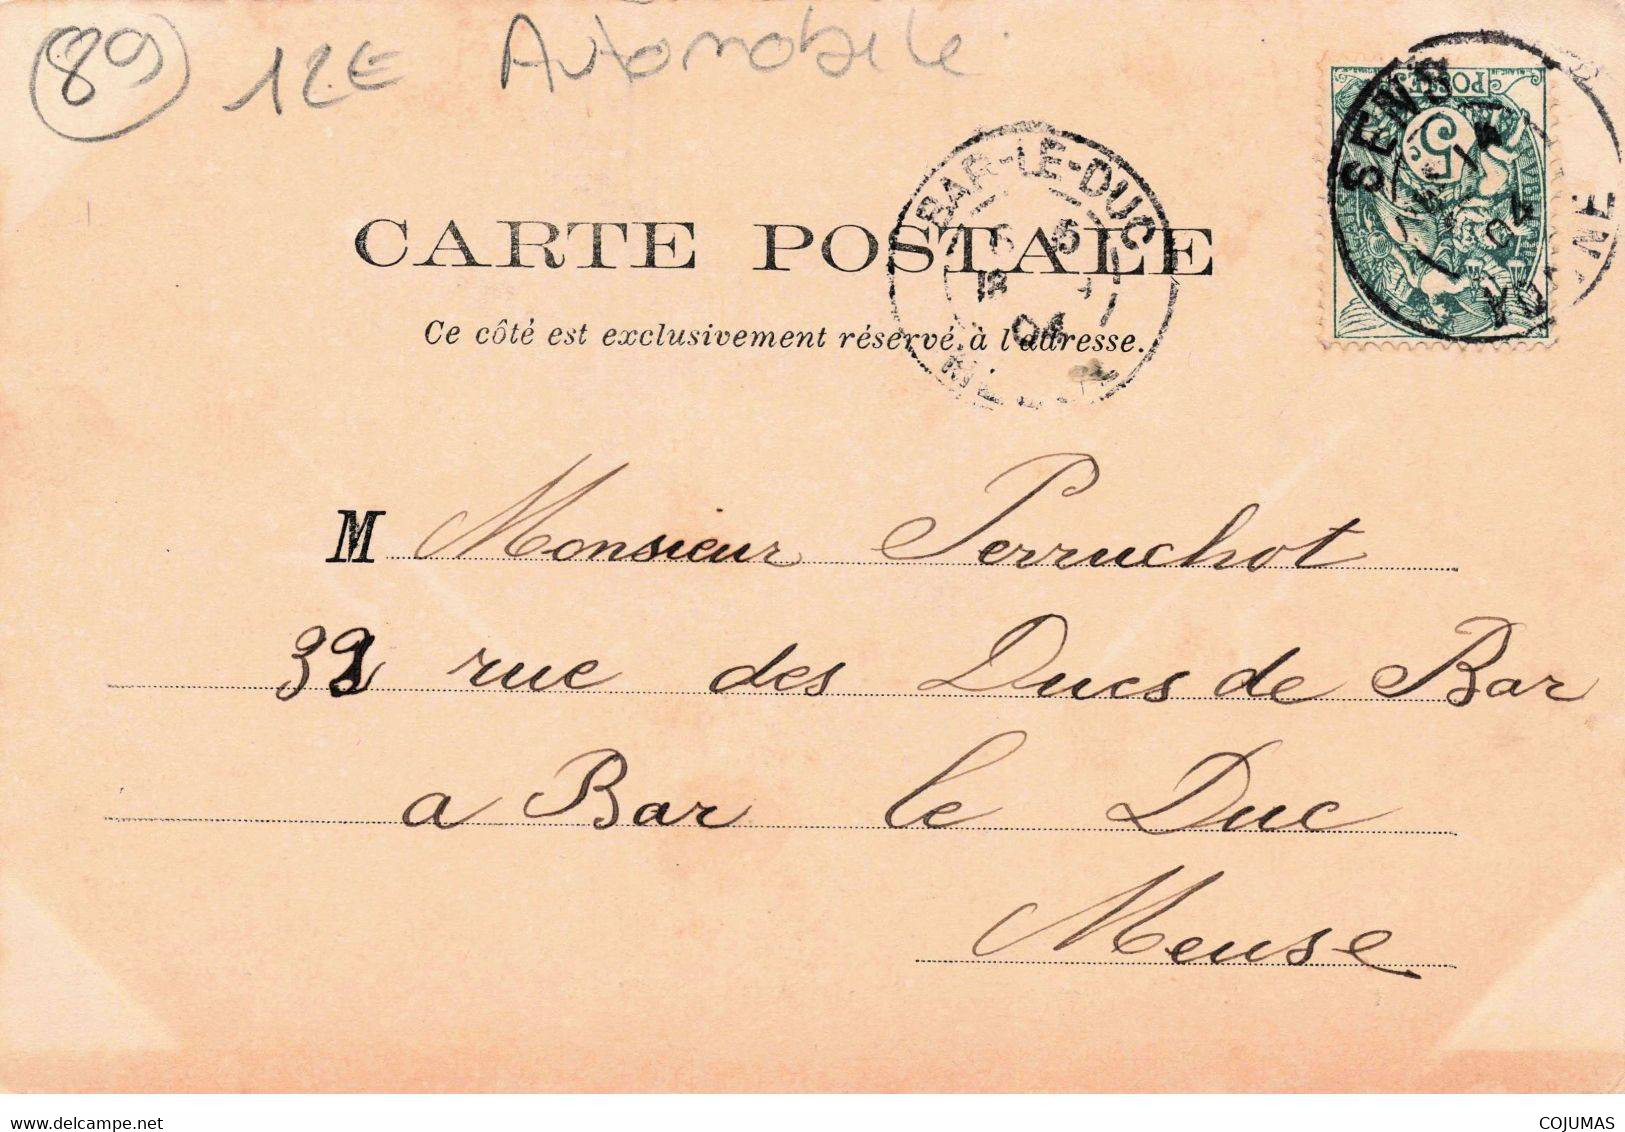 89 12E Automobile
CARTE POSTALE
Ce côté est exclusivement réservé à l'adresse.
BAR-LE-DUC
04
SENS
04
YONNE
5
POSTES
M Monsieur Perruchot
rue des Ducs de Bar
a Bar le Duc
Meuse
www.delcampe.net
COJUMAS